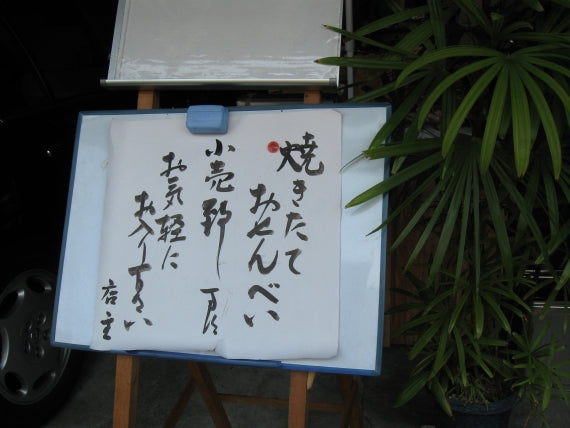 焼きたて
おせんべい
小売致します
お気軽に
お入り下さい
店主